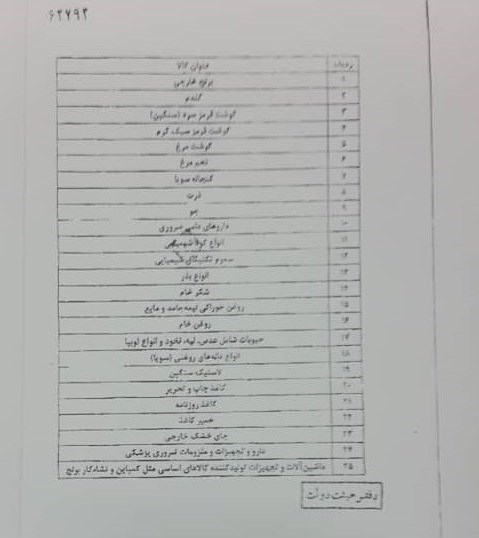 ۶۲۶۹۴
ردیف عنوان کالا
۱ برنج خارجی
۲ گندم
۳ گوشت قرمز سرد (سنگین)
۴ گوشت قرمز سبک گرم
۵ گوشت مرغ
۶ تخم مرغ
۷ کنجاله سویا
۸ ذرت
۹ جو
۱۰ داروهای دامی ضروری
۱۱ انواع کود شیمیایی
۱۲ سموم تکنیکال شیمیایی
۱۳ انواع بذر
۱۴ شکر خام
۱۵ روغن خوراکی نیمه جامد و مایع
۱۶ روغن خام
۱۷ حبوبات شامل عدس، لپه، نخود و انواع لوبیا
۱۸ انواع دانه‌های روغنی (سویا)
۱۹ لاستیک سنگین
۲۰ کاغذ چاپ و تحریر
۲۱ کاغذ روزنامه
۲۲ خمیر کاغذ
۲۳ چای خشک خارجی
۲۴ دارو و تجهیزات و ملزومات ضروری پزشکی
۲۵ ماشین آلات و تجهیزات تولیدکننده کالاهای اساسی مثل کمباین و نشاءکار برنج
دفتر هیئت دولت